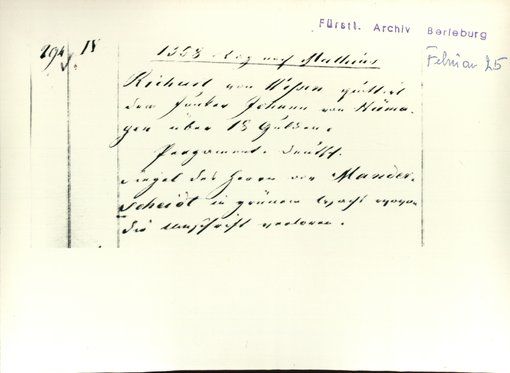 Fürstl. Archiv Berleburg
Februar 25
18
1358 Tag nach Mathias
Richart von
dem Junker Johann von Rüma-
gen über 18 Gulden.
Pergament. deutsch.
Siegel des Herrn von Mander-
scheidt in grünem Wachs wovon
die Umschrift verloren.